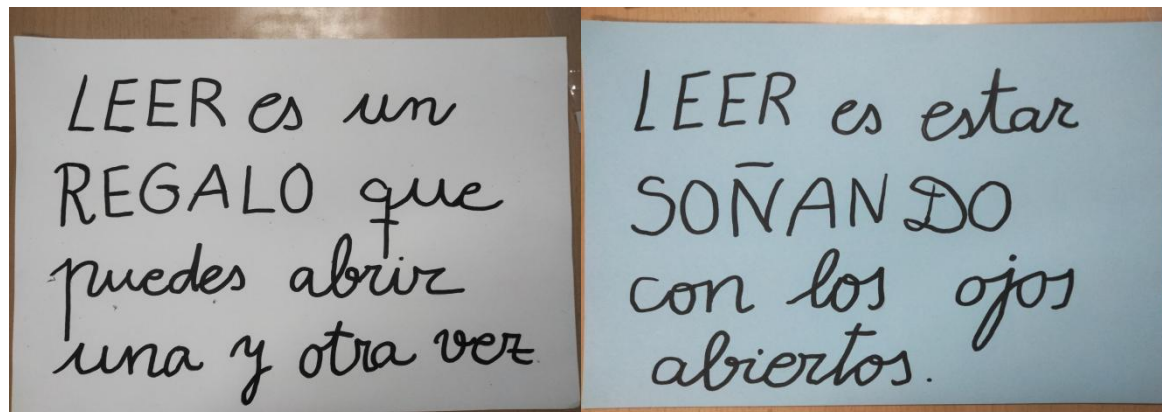 LEER es un
REGALO que
puedes abrir
una y otra vez
LEER es estar
SOÑANDO
con los ojos
abiertos.